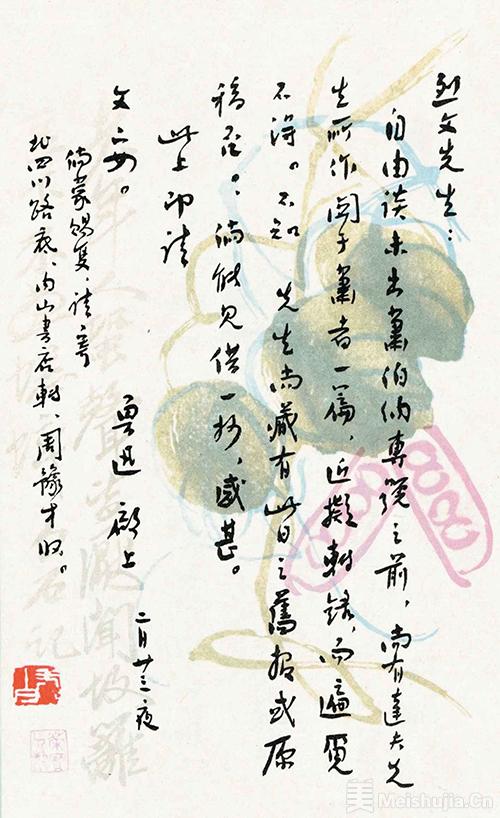 烈文先生：
自由談未出蕭伯納專號之前，尚有達夫先
生所作関于蕭者一篇，近擬轉錄，而遍覓
不得。不知 先生尚藏有此日之舊报或原
稿否。：倘能見借一抄，感甚。
此上 即請
文安。
魯迅 啟上 二月廿三夜
倘蒙賜复，請寄
北四川路底、内山書店轉、周豫才收。
美 Meishujia.Cn